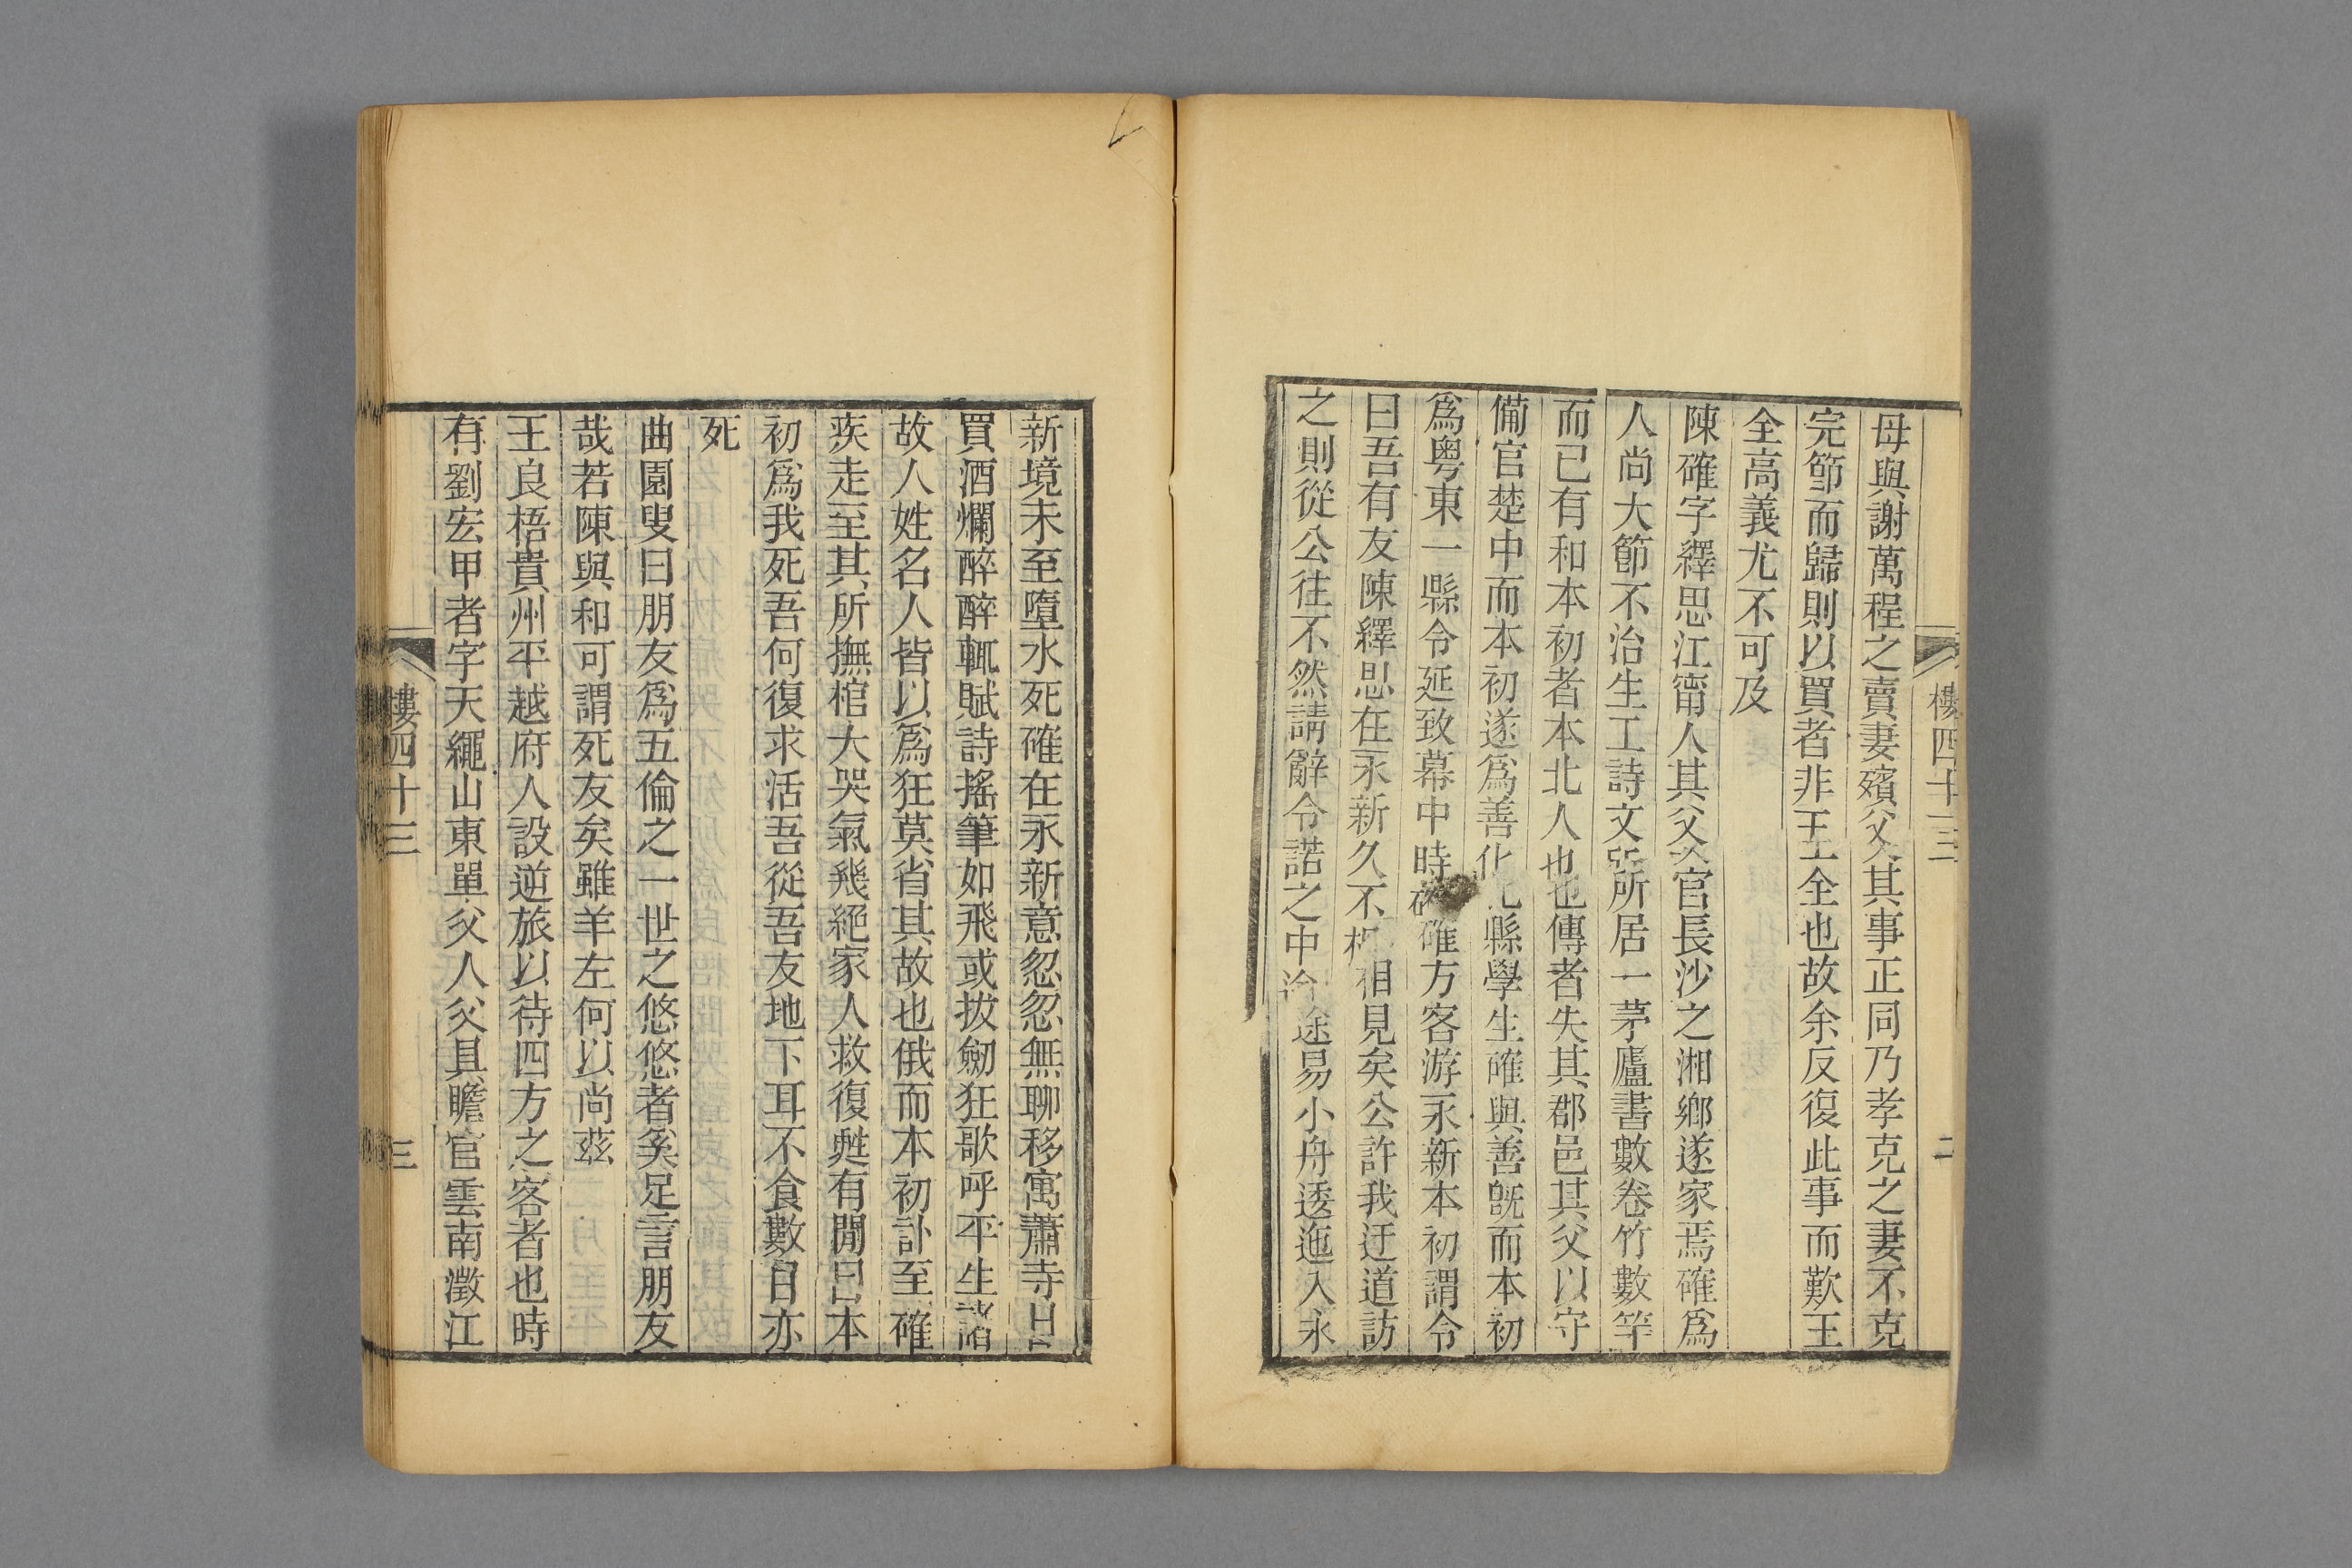 樓四十三
二
母與謝萬程之賣妻殯父其事正同乃孝克之妻不克
完節而歸則以買者非王全也故余反復此事而歎王
全高義尤不可及
陳確字繹思江甯人其父官長沙之湘鄉遂家焉確爲
人尚大節不治生工詩文所居一茅廬書數卷竹數竿
而已有和本初者本北人也傳者失其郡邑其父以守
備官楚中而本初遂爲善化縣學生確與善旣而本初
爲粤東一縣令延致幕中時確方客游永新本初謂令
曰吾有友陳繹思在永新久不相見矣公許我迂道訪
之則從公往不然請辭令諾之中途易小舟逶迤入永
新境未至墮水死確在永新意忽忽無聊移寓蕭寺日
買酒爛醉醉輒賦詩搖筆如飛或拔劒狂歌呼平生諸
故人姓名人皆以爲狂莫省其故也俄而本初訃至確
疾走至其所撫棺大哭氣幾絕家人救復甦有閒曰本
初爲我死吾何復求活吾從吾友地下耳不食數日亦
死
曲園叟曰朋友爲五倫之一世之悠悠者奚足言朋友
哉若陳與和可謂死友矣雖羊左何以尚茲
王良梧貴州平越府人設逆旅以待四方之客者也時
有劉宏甲者字天繩山東單父人父具瞻官雲南澂江
樓四十三
三